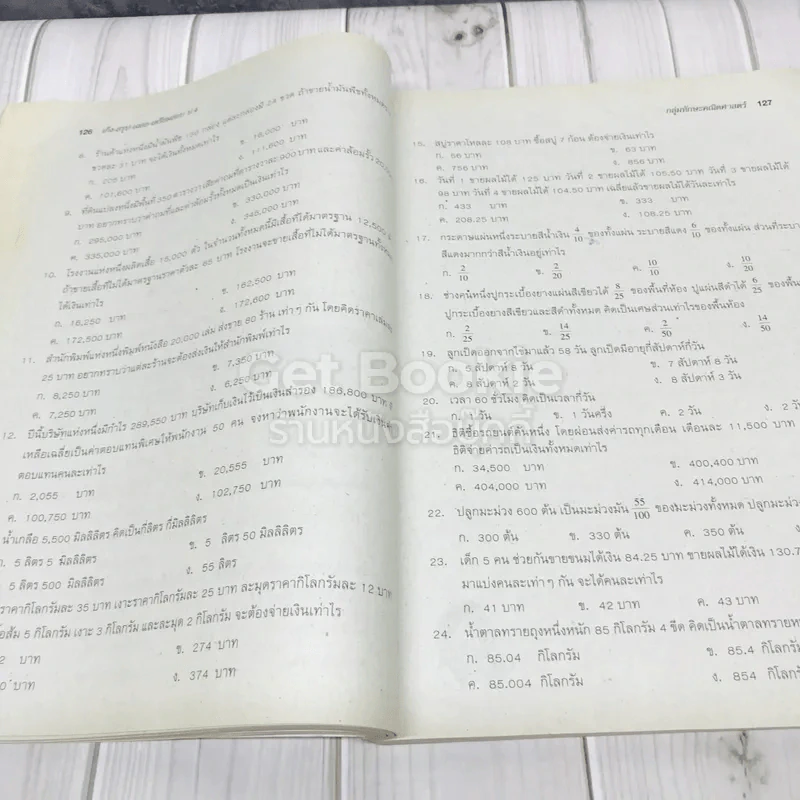 126
8. ร้านค้าแห่งหนึ่งมีน้ำมันพืช 150 กล่อง แต่ละกล่องมี 24 ขวด ถ้าขายน้ำมันพืชทั้งหมด
ขวดละ 31 บาท จะได้เงินทั้งหมดเท่าไร
ก. 205 บาท ข. 16,000 บาท
ค. 101,600 บาท ง. 111,600 บาท
9. ที่ดินแปลงหนึ่งมีพื้นที่ 350 ตารางวา
บาท อยากทราบว่าค่าถมที่และค่าล้อมรั้วทั้งหมดเป็นเงินเท่าไร
ก. 295,000 บาท ข. 330,000 บาท
ค. 335,000 บาท ง. 345,000 บาท
10. โรงงานแห่งหนึ่งผลิตเสื้อ 15,000 ตัว ในจำนวนทั้งหมดนี้มีเสื้อที่ได้มาตรฐาน 12,500
ถ้าขายเสื้อที่ไม่ได้มาตรฐานราคาตัวละ 65 บาท โรงงานจะขายเสื้อที่ไม่ได้มาตรฐานทั้งหมด
ได้เงินเท่าไร
ก. 16,250 บาท ข. 162,500 บาท
ค. 172,500 บาท ง. 172,600 บาท
11. สำนักพิมพ์แห่งหนึ่งพิมพ์หนังสือ 20,000 เล่ม ส่งขาย 80 ร้าน เท่าๆ กัน โดยคิดราคาเล่มละ
25 บาท อยากทราบว่าแต่ละร้านจะต้องส่งเงินให้สำนักพิมพ์เท่าไร
ก. 8,250 บาท ข. 7,350 บาท
ค. 7,250 บาท ง. 6,250 บาท
12. ปีนี้บริษัทแห่งหนึ่งมีกำไร 289,550 บาท บริษัทเก็บเงินไว้เป็นเงินสำรอง 186,800 บาท
เหลือเฉลี่ยเป็นค่าตอบแทนพิเศษให้พนักงาน 50 คน จงหาว่าพนักงานจะได้รับเงิน
ตอบแทนคนละเท่าไร
ก. 2,055 บาท ข. 20,555 บาท
ค. 100,750 บาท ง. 102,750 บาท
น้ำเกลือ 5,500 มิลลิลิตร คิดเป็นกี่ลิตร กี่มิลลิลิตร
5 ลิตร 5 มิลลิลิตร ข. 5 ลิตร 50 มิลลิลิตร
5 ลิตร 500 มิลลิลิตร ง. 55 ลิตร
ราคากิโลกรัมละ 35 บาท เงาะราคากิโลกรัมละ 25 บาท ละมุดราคากิโลกรัมละ 12 บาท
ส้ม 5 กิโลกรัม เงาะ 3 กิโลกรัม และละมุด 2 กิโลกรัม จะต้องจ่ายเงินเท่าไร
2 บาท ข. 274 บาท
0 บาท ง. 374 บาท
กลุ่มทักษะคณิตศาสตร์ 127
15. สบู่ราคาโหลละ 108 บาท ซื้อสบู่ 7 ก้อน ต้องจ่ายเงินเท่าไร
ก. 56 บาท ข. 63 บาท
ค. 756 บาท ง. 856 บาท
16. วันที่ 1 ขายผลไม้ได้ 125 บาท วันที่ 2 ขายผลไม้ได้ 105.50 บาท วันที่ 3 ขายผลไม้ได้
98 บาท วันที่ 4 ขายผลไม้ได้ 104.50 บาท เฉลี่ยแล้วขายผลไม้ได้วันละเท่าไร
ก. 433 บาท ข. 333 บาท
ค. 208.25 บาท ง. 108.25 บาท
17. กระดาษแผ่นหนึ่งระบายสีน้ำเงิน 4/10 ของทั้งแผ่น ระบายสีแดง 6/10 ของทั้งแผ่น ส่วนที่ระบาย
สีแดงมากกว่าสีน้ำเงินอยู่เท่าไร
ก. 2/10 ข. 2/20 ค. 10/10 ง. 10/20
18. ช่างคนหนึ่งปูกระเบื้องยางแผ่นสีเขียวได้ 8/25 ของพื้นที่ห้อง ปูแผ่นสีดำได้ 6/25 ของพื้น
ปูกระเบื้องยางสีเขียวและสีดำทั้งหมด คิดเป็นเศษส่วนเท่าไรของพื้นห้อง
ก. 2/25 ข. 14/25 ค. 2/50 ง. 14/50
19. ลูกเป็ดออกจากไข่มาแล้ว 58 วัน ลูกเป็ดมีอายุกี่สัปดาห์กี่วัน
ก. 5 สัปดาห์ 8 วัน ข. 7 สัปดาห์ 8 วัน
ค. 8 สัปดาห์ 2 วัน ง. 8 สัปดาห์ 3 วัน
20. เวลา 60 ชั่วโมง คิดเป็นเวลากี่วัน
ก. 1 วัน ข. 1 วันครึ่ง ค. 2 วัน ง. 2 วัน
21. ธิติซื้อรถยนต์คันหนึ่ง โดยผ่อนส่งค่ารถทุกเดือน เดือนละ 11,500 บาท
ธิติจ่ายค่ารถเป็นเงินทั้งหมดเท่าไร
ก. 34,500 บาท ข. 400,400 บาท
ค. 404,000 บาท ง. 414,000 บาท
22. ปลูกมะม่วง 600 ต้น เป็นมะม่วงมัน 55/100 ของมะม่วงทั้งหมด ปลูกมะม่วง
ก. 300 ต้น ข. 330 ต้น ค. 350 ต้น ง.
23. เด็ก 5 คน ช่วยกันขายขนมได้เงิน 84.25 บาท ขายผลไม้ได้เงิน 130.7
มาแบ่งคนละเท่าๆ กัน จะได้คนละเท่าไร
ก. 41 บาท ข. 42 บาท ค. 43 บาท
24. น้ำตาลทรายถุงหนึ่งหนัก 85 กิโลกรัม 4 ขีด คิดเป็นน้ำตาลทราย
ก. 85.04 กิโลกรัม ข. 85.4 กิโลกรัม
ค. 85.004 กิโลกรัม ง. 854 กิโลกรัม
Get Bookie
ร้านหนังสือบุ๊คกี้